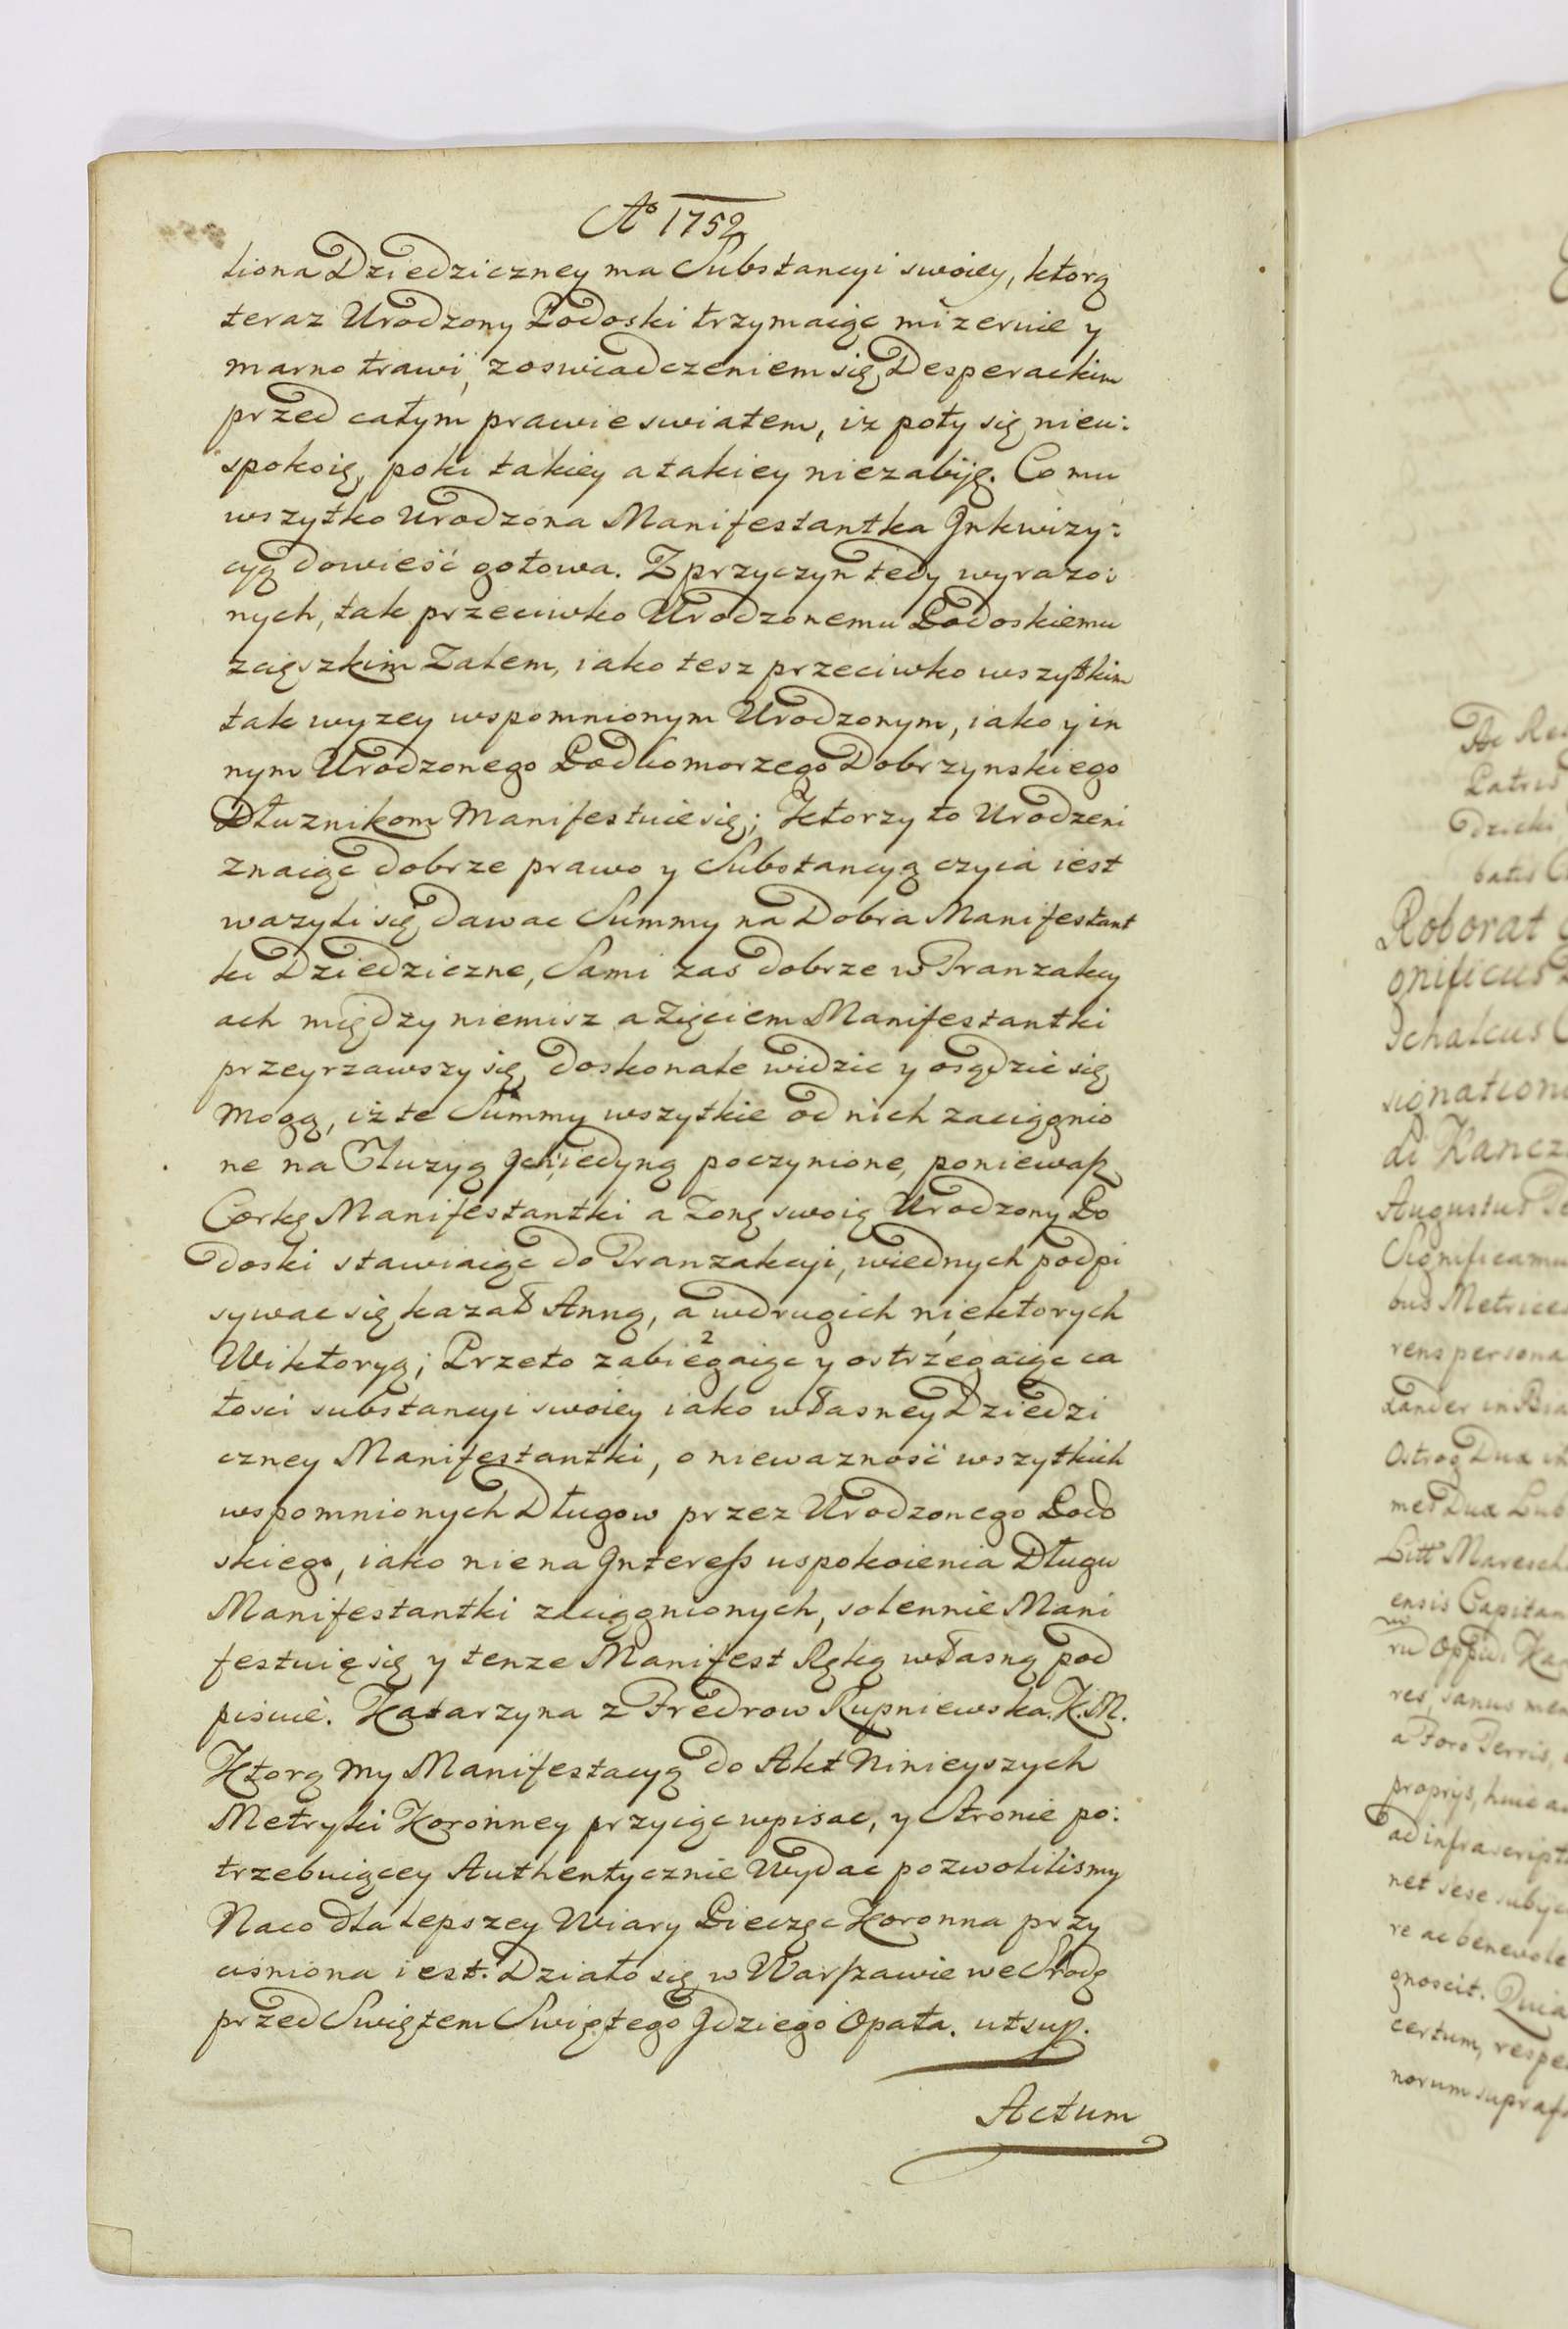 Aº 1752
liona Dziedziczney ma Substancyi swoiey, ktorą
teraz Urodzony Podoski trzymaiąc mizernie y
marno trawi, zoswiadczeniem się Desperackim
przed całym prawie swiatem, iz poty się nieu:
spokoię, poki takiey a takiey niezabiję. Co mu
wszytko Urodzona Manifestantka Jnkwizy:
cyą dowieść gotowa. Z przyczyn tedy wyrazo:
nych, tak przeciwko Urodzonemu Podoskiemu
zcięszkim Zalem, iako tesz przeciwko wszytkim
tak wyzey wspomnionym Urodzonym, iako y in
nym Urodzonego Podkomorzego Dobrzynskiego
Dłuznikom Manifestuie się; Ktorzy to Urodzeni
znaiąc dobrze prawo y Substancyą czyia iest
wazyli się dawac Summy na Dobra Manifestant
ki Dziedziczne, Sami zas dobrze w Tranzakcy
ach między niemisz a Zięciem Manifestantki
przeyrzawszy się, doskonale widzic y osądzić się
mogą, iż te Summy wszytkie od nich zaciągnio
ne na Jluzyą Jch iedyną poczynione, poniewasz
Corkę Manifestantki a Zonę swoią Urodzony Po
doski stawiaiąc do Tranzakcyi, wiednych podpi
sywac się kazał Anną, a wdrugich niektorych
Wiktoryą; Przeto zabiegaiąc y ostrzegaiąc ca
łosci substancyi swoiey iako własney Dziedzi
czney Manifestantki, o niewaznosć wszytkich
wspomnionych Długow przez Urodzonego Podo
skiego, iako niena Jnteress uspokoienia Długu
Manifestantki zaciągnionych, solennie Mani
festuię się y tenze Manifest Ręką własną pod
pisuie. Katarzyna z Fredrow Rupniewska. K. M.
Ktorą My Manifestacyą do Akt Ninieyszych
Metryki Koronney przyiąc wpisac, y Stronie po:
trzebuiącey Authentycznie Wydac pozwolilismy
Naco dla lepszey Wiary Pieczęc Koronna przy
cisniona iest. Działo się w Warszawie we Srodę
przed Swiętem Swiętego Jdziego Opata. ut sup.
Actum
Roborat